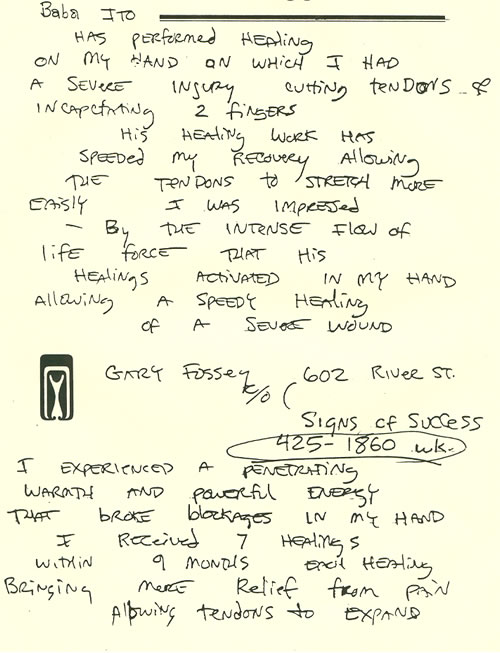 Baba Ito
HAS PERFORMED HEALING
ON MY HAND ON WHICH I HAD
A SEVERE INJURY CUTTING TENDONS &
INCAPCTATING 2 FINGERS
HIS HEALING WORK HAS
SPEEDED MY RECOVERY ALLOWING
THE TENDONS TO STRETCH MORE
EAISLY I WAS IMPRESSED
- By THE INTENSE FLOW OF
LIFE FORCE THAT HIS
HEALINGS ACTIVATED IN MY HAND
ALLOWING A SPEEDY HEALING
OF A SEVERE WOUND
GARY FOSSEY c/o ( 602 RIVER ST.
SIGNS OF SUCCESS
425-1860 wk.
I EXPERIENCED A PENETRATING
WARMTH AND POWERFUL ENERGY
THAT BROKE BLOCKAGES IN MY HAND
I RECEIVED 7 HEALINGS
WITHIN 9 MONTHS EACH HEALING
BRINGING MORE RELIEF FROM PAIN
ALLOWING TENDONS TO EXPAND